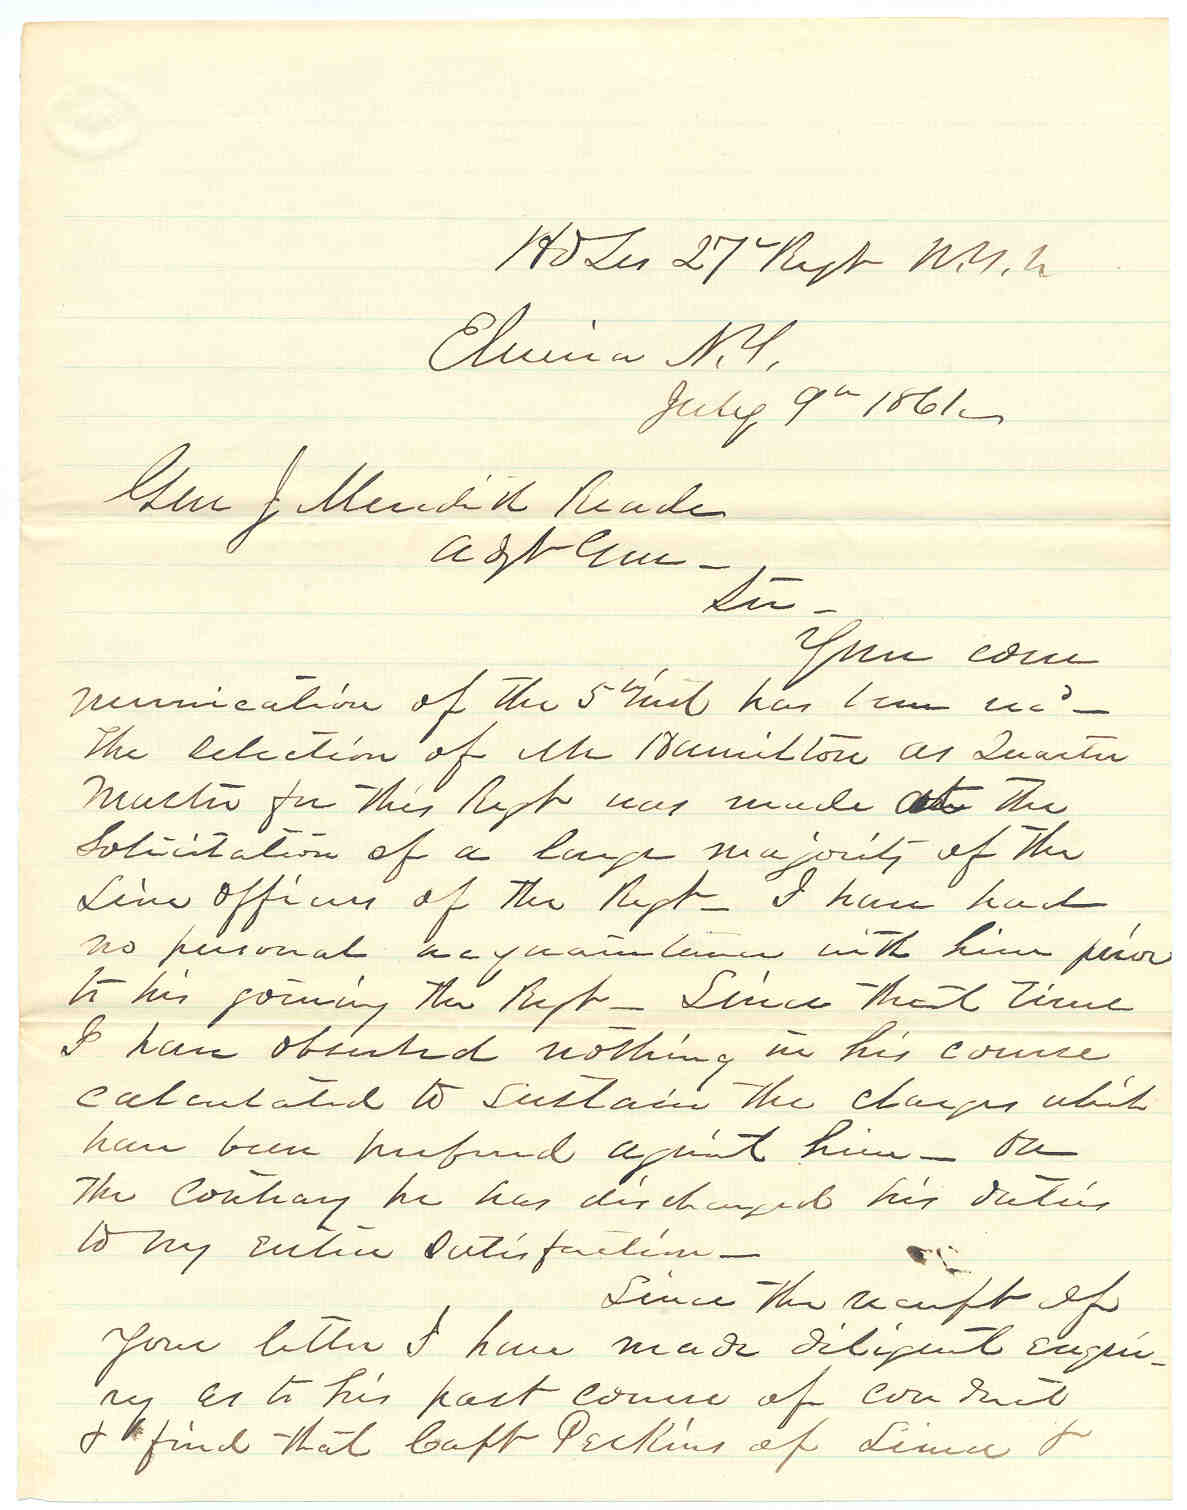 Hd Qrs 27" Regt N.Y.V
Elmira N.Y.
July 9th 1861
Gen J Meredith Reade
Adjt Gen -
Sir -
Your com
munication of the 5th inst has been recd -
The selection of Mr Hamilton as Quarter
Master for this Regt was made at the
Solicitation of a large majority of the
Line officers of the Regt - I have had
no personal acquaintance with him prior
to his joining the Regt - Since that time
I have observed nothing in his course
calculated to sustain the charges which
have been prefered against him - On
the Contrary he has discharged his duties
to my entire satisfaction -
Since the receipt of
your letter I have made diligent enqui-
ry as to his past course of conduct
& find that Capt Perkins of Lima &